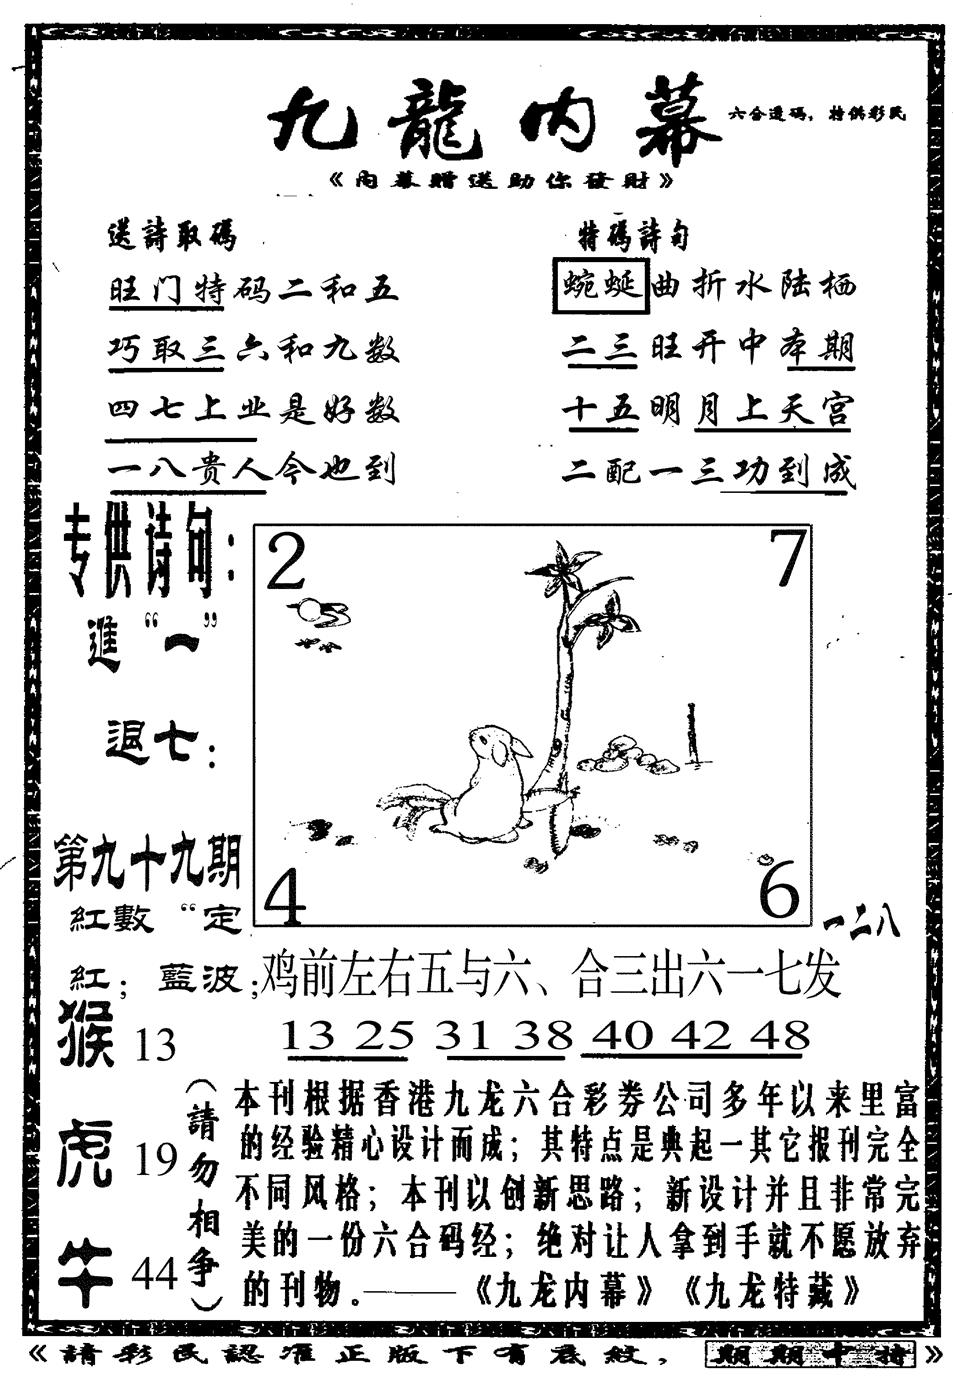 九龍内幕
六合透码，特供彩民
《内幕贈送助你發財》
送詩取碼
旺门特码二和五
巧取三六和九数
四七上业是好数
一八贵人今也到
特碼詩句
蜿蜒曲折水陆栖
二三旺开中本期
十五明月上天宫
二配一三功到成
专供诗句：
進“一”
退七：
第九十九期
紅數“定
紅；藍波；
猴 13
虎 19
牛 44
2
7
4
6
一二八
鸡前左右五与六、合三出六一七发
13 25 31 38 40 42 48
（請勿相争）
本刊根据香港九龙六合彩券公司多年以来里富
的经验精心设计而成；其特点是典起一其它报刊完全
不同风格；本刊以创新思路；新设计并且非常完
美的一份六合码经；绝对让人拿到手就不愿放弃
的刊物。——《九龙内幕》《九龙特藏》
《請彩民認准正版下有底紋，期期中特》